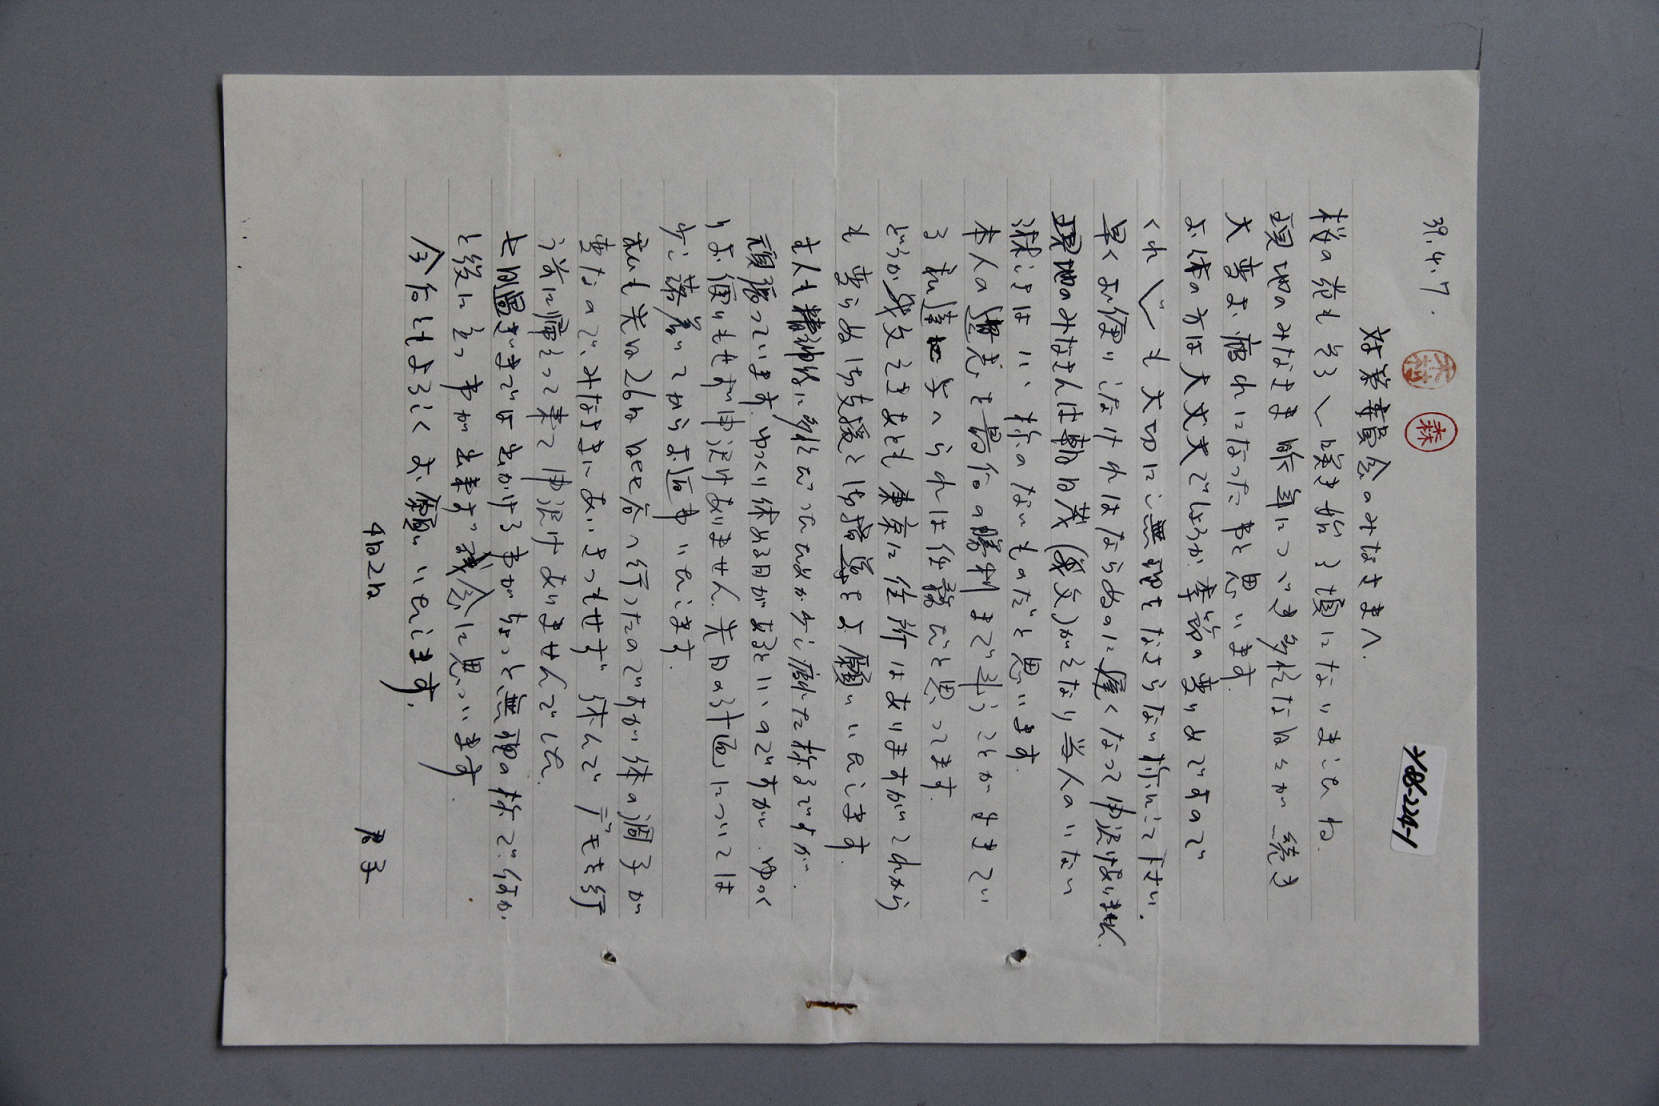 39.4.7.
森
Y88-224-1
対策委員会のみなさまへ.
桜の花もそろ〱咲き始る頃になりましたね.
現地のみなさま昨年につづき多忙な日々が続き
大変お疲れになった事と思います.
お体の方は大丈夫でしょうか.季節の変りめですので
くれ〲も大切にご無理をなさらない様にして下さい.
早くお便りしなければならぬのに遅くなって申訳ありません.
現地のみなさんは朝日茂(義父)がそなり当人のいない
淋しさはいい様のないものだと思います.
本人の遺志を最后の勝利まで斗うことがまさしい
る私達に与へられた任務だと思ってます.
どうか義父なきあとも東京に住所はありますがこれから
も変らぬ御支援と御指導をお願いいたします.
主人も精神的に多忙だったためか少し疲れた様子ですが.
頑張っています.ゆっくり休める日があるといいのですが.ゆっく
りお便りもせず申訳ありません.先日の計画については
少し落着いてからお返事いたします.
私も先日26日日比谷へ行ったのですが体の調子が
変なので,みなさまにあいさつもせず休んでデモを行
う前に帰えって来て申訳ありませんでした.
七時過ぎまでは出かける事がちょっと無理の様で.何か
と後に立つ事が出来ず残念に思っています.
今后ともよろしくお願いいたします.
4月2日
君子